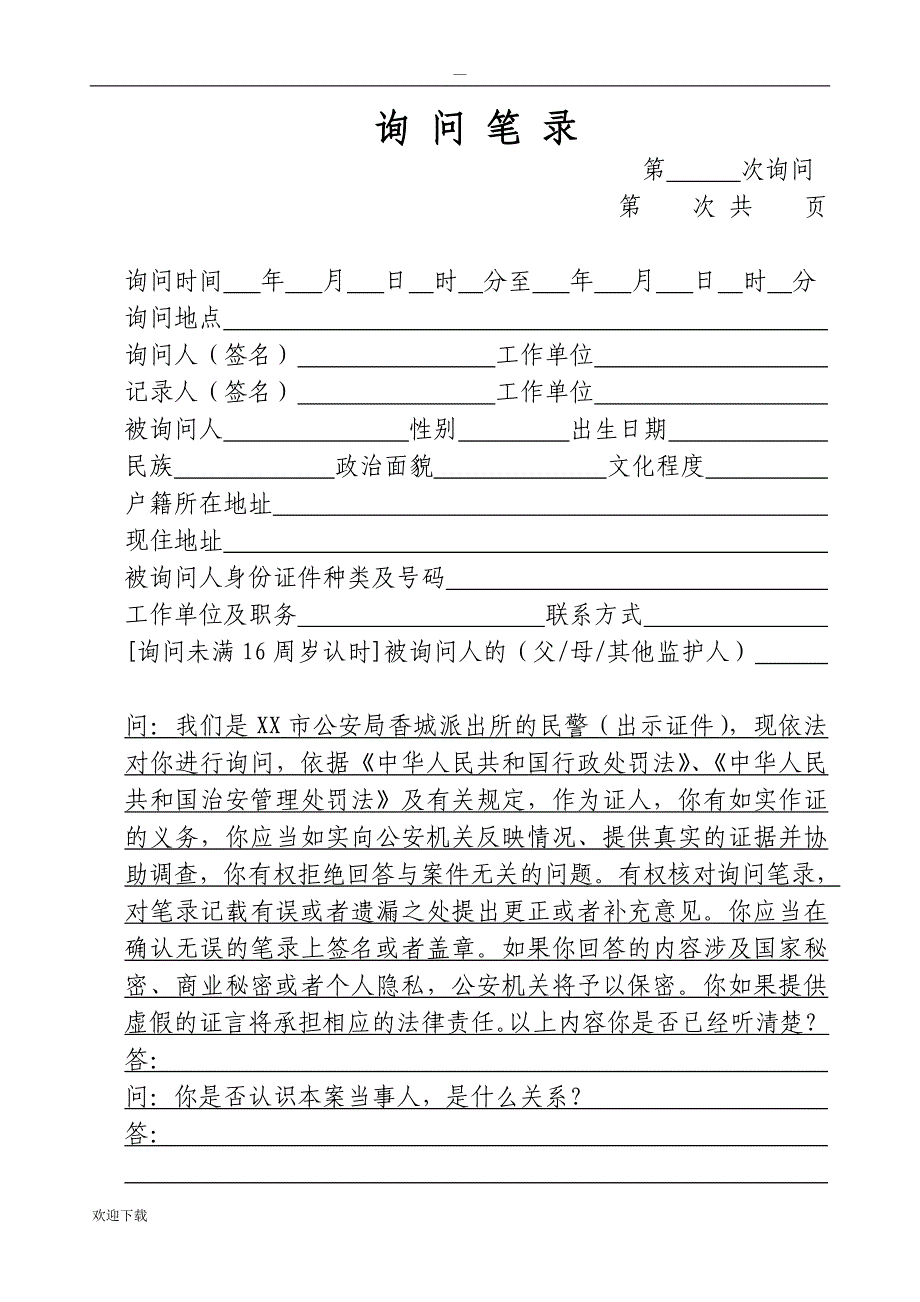 —
询 问 笔 录
第______次询问
第 次 共 页
询问时间___年___月___日__时__分至___年___月___日__时__分
询问地点
询问人（签名）________________工作单位
记录人（签名）________________工作单位
被询问人_______________性别_________出生日期
民族_____________政治面貌______________文化程度
户籍所在地址
现住地址
被询问人身份证件种类及号码
工作单位及职务____________________联系方式
[询问未满16周岁认时]被询问人的（父/母/其他监护人）______
问：我们是XX市公安局香城派出所的民警（出示证件），现依法
对你进行询问，依据《中华人民共和国行政处罚法》、《中华人民
共和国治安管理处罚法》及有关规定，作为证人，你有如实作证
的义务，你应当如实向公安机关反映情况、提供真实的证据并协
助调查，你有权拒绝回答与案件无关的问题。有权核对询问笔录，
对笔录记载有误或者遗漏之处提出更正或者补充意见。你应当在
确认无误的笔录上签名或者盖章。如果你回答的内容涉及国家秘
密、商业秘密或者个人隐私，公安机关将予以保密。你如果提供
虚假的证言将承担相应的法律责任。以上内容你是否已经听清楚？
答：
问：你是否认识本案当事人，是什么关系？
答：
欢迎下载